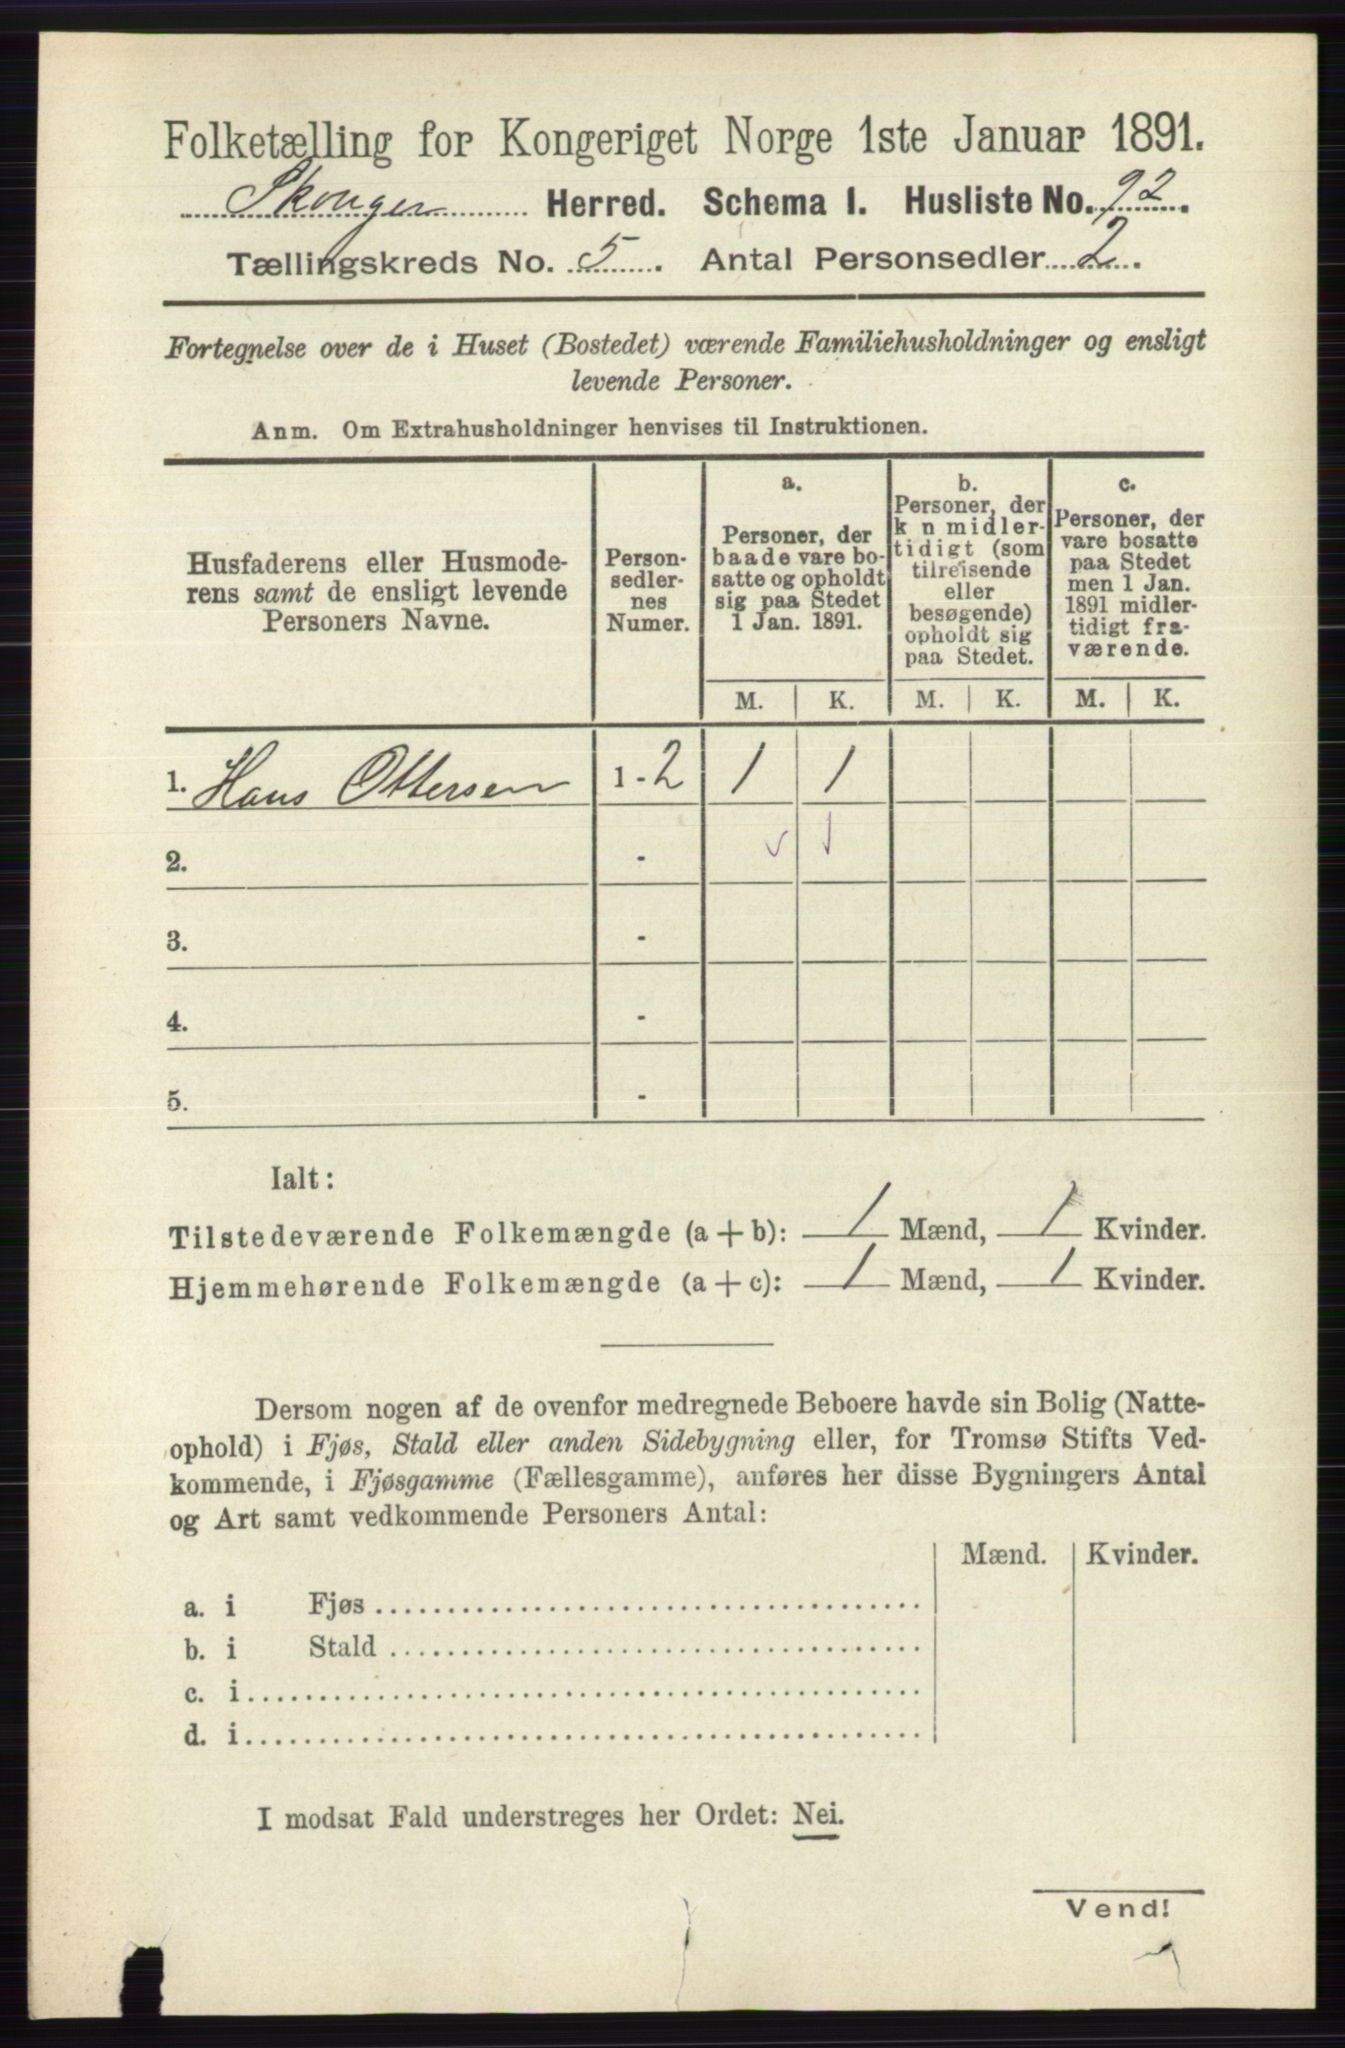 Folketælling for Kongeriget Norge 1ste Januar 1891.
Skouger Herred. Schema I. Husliste No. 92.
Tællingskreds No. 5. Antal Personsedler 2.
Fortegnelse over de i Huset (Bostedet) værende Familiehusholdninger og ensligt
levende Personer.
Anm. Om Extrahusholdninger henvises til Instruktionen.
Husfaderens eller Husmode-
rens samt de ensligt levende
Personers Navne.
Person-
sedler-
nes
Numer.
a.
Personer, der
baade vare bo-
satte og opholdt
sig paa Stedet
1 Jan. 1891.
b.
Personer, der
k n midler-
tidigt (som
tilreisende
eller
besøgende)
opholdt sig
paa Stedet.
c.
Personer, der
vare bosatte
paa Stedet
men 1 Jan.
1891 midler-
tidigt fra-
værende.
M. K. M. K. M. K.
1. Hans Ottersen 1 - 2 1 1
2. -
3. -
4. -
5. -
Ialt:
Tilstedeværende Folkemængde (a + b): 1 Mænd, 1 Kvinder.
Hjemmehørende Folkemængde (a + c): 1 Mænd, 1 Kvinder.
Dersom nogen af de ovenfor medregnede Beboere havde sin Bolig (Natte-
ophold) i Fjøs, Stald eller anden Sidebygning eller, for Tromsø Stifts Ved-
kommende, i Fjøsgamme (Fællesgamme), anføres her disse Bygningers Antal
og Art samt vedkommende Personers Antal:
Mænd. Kvinder.
a. i Fjøs
b. i Stald
c. i
d. i
I modsat Fald understreges her Ordet: Nei.
Vend!